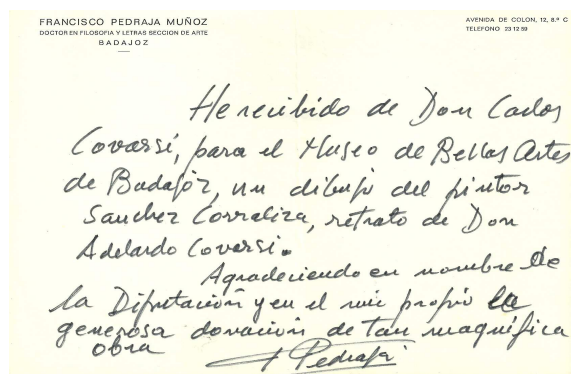 FRANCISCO PEDRAJA MUÑOZ
DOCTOR EN FILOSOFIA Y LETRAS SECCION DE ARTE
BADAJOZ
AVENIDA DE COLON, 12, 8.º C
TELEFONO 23 12 59
He recibido de Don Carlos
Covarsí, para el Museo de Bellas Artes
de Badajoz, un dibujo del pintor
Sanchez Corraliza, retrato de Don
Adelardo Covarsi.
Agradeciendo en nombre de
la Diputación y en el mio propio la
generosa donación de tan magnífica
obra
F Pedraja